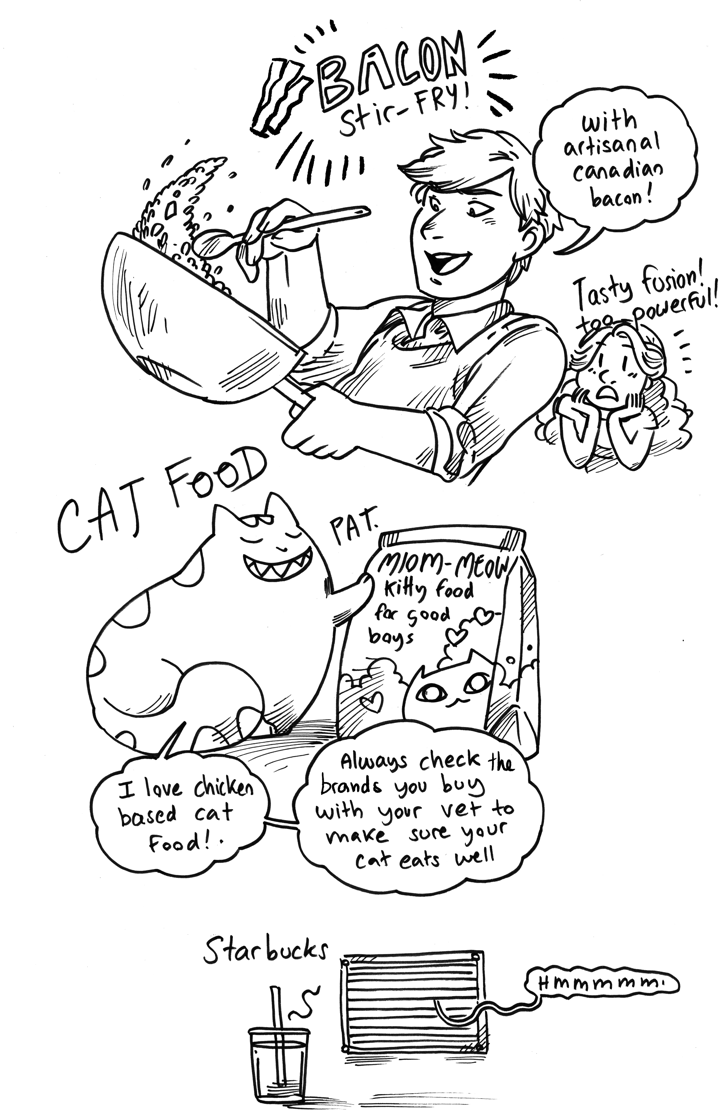 BACON
Stir-FRY!
with
artisanal
canadian
bacon!
Tasty fusion!
too powerful!
CAT FOOD
PAT.
MIOM-MEOW
Kitty food
for good
boys
I love chicken
based cat
Food!.
Always check the
brands you buy
with your vet to
make sure your
cat eats well
Starbucks
Hmmmmm.